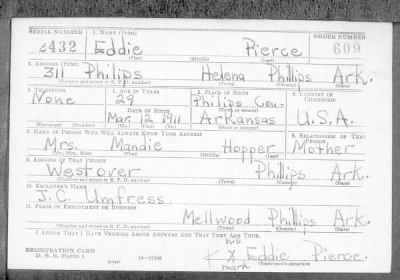 SERIAL NUMBER 1. NAME (Print) ORDER NUMBER
2432 Eddie Pierce 609
(First) (Middle) (Last)
2. ADDRESS (Print)
311 Philips Helena Phillips Ark.
(Number and street or R. F. D. number) (Town) (County) (State)
3. TELEPHONE 4. AGE IN YEARS 5. PLACE OF BIRTH 6. COUNTRY OF CITIZENSHIP
None 29 Philips Cou-
DATE OF BIRTH (Town or county)
Mar. 12 1911 Arkansas U.S.A.
(Exchange) (Number) (Mo.) (Day) (Yr.) (State or country)
7. NAME OF PERSON WHO WILL ALWAYS KNOW YOUR ADDRESS 8. RELATIONSHIP OF THAT PERSON
Mrs. Mandie Hopper Mother
(Mr., Mrs., Miss) (First) (Middle) (Last)
9. ADDRESS OF THAT PERSON
Westover Phillips Ark.
(Number and street or R. F. D. number) (Town) (County) (State)
10. EMPLOYER'S NAME
J.C. Umfress.
11. PLACE OF EMPLOYMENT OR BUSINESS
Mellwood Phillips Ark.
(Number and street or R. F. D. number) (Town) (County) (State)
I AFFIRM THAT I HAVE VERIFIED ABOVE ANSWERS AND THAT THEY ARE TRUE.
his
REGISTRATION CARD X Eddie Pierce.
D. S. S. Form 1 mark (Registrant's signature)